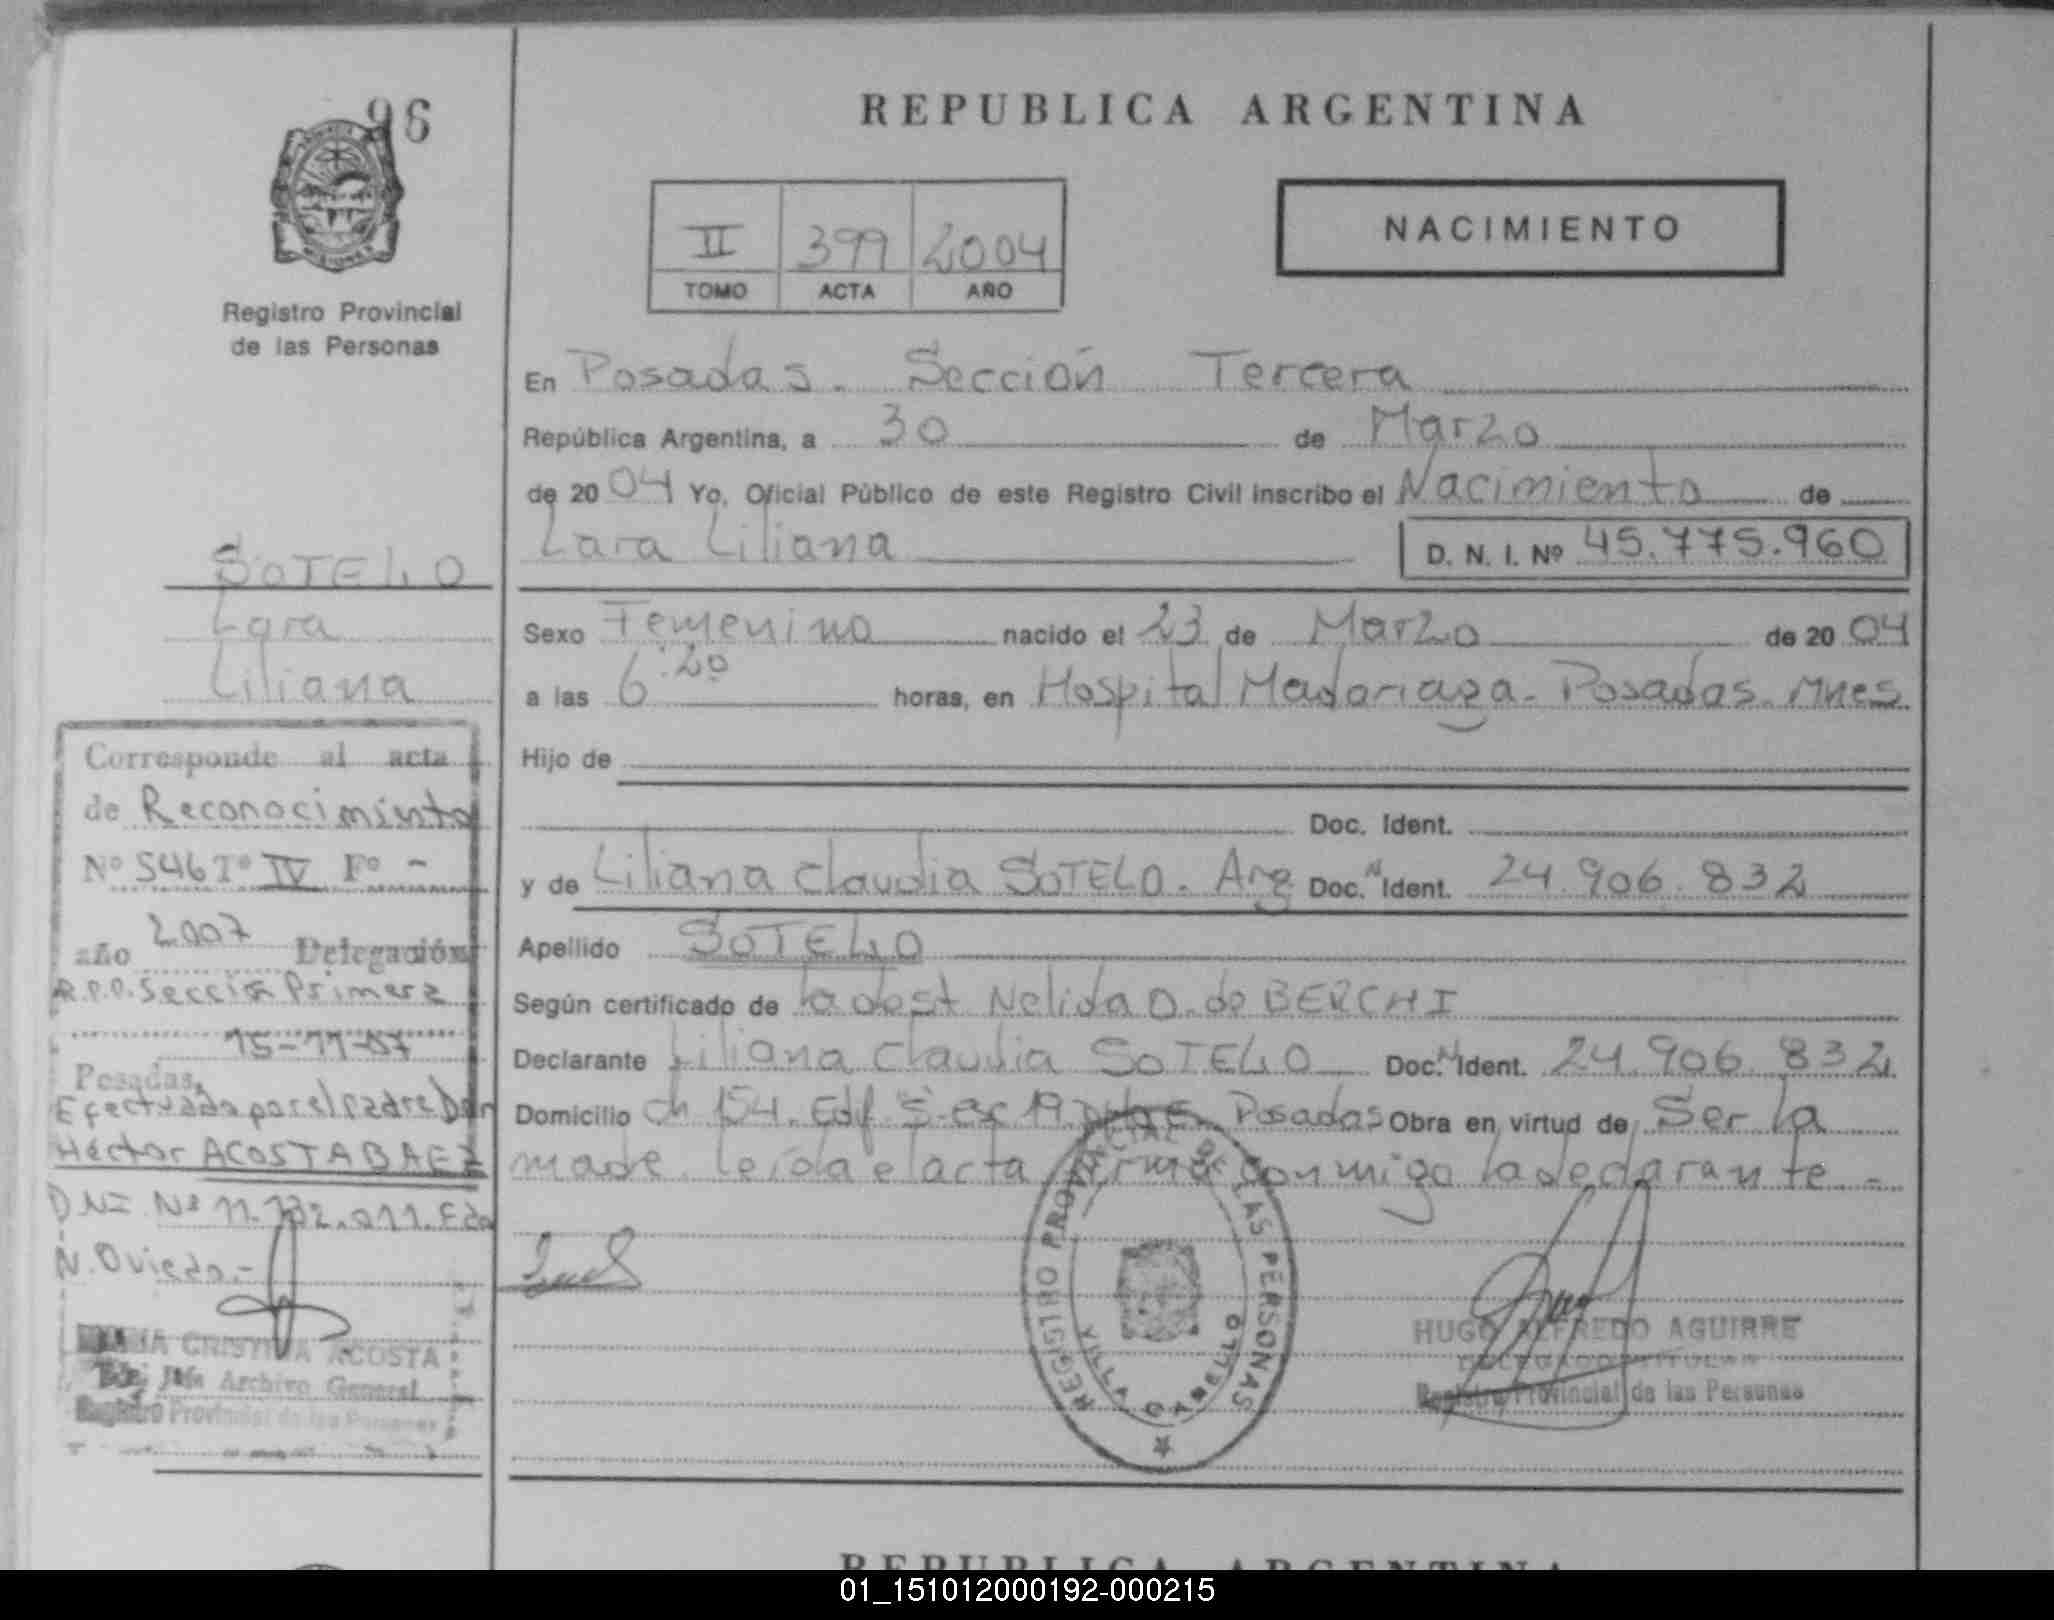 96
REPUBLICA ARGENTINA
II 399 2004
TOMO ACTA AÑO
NACIMIENTO
Registro Provincial
de las Personas
SOTELO
Lara
Liliana
Corresponde al acta
de Reconocimiento
Nº 546 Tº IV Fº -
año 2007 Delegación
R.P.P. Sección Primera
15-11-07
Posadas,
Efectuado por el padre Don
Héctor ACOSTA BAEZ
DNI Nº 11.132.011. Edo
N. Oviedo.-
CRISTINA ACOSTA
Jefe Archivo General
Registro Provincial de las Personas
En Posadas. Sección Tercera
República Argentina, a 30 de Marzo
de 2004 Yo, Oficial Público de este Registro Civil inscribo el Nacimiento de
Lara Liliana D. N. I. Nº 45.775.960
Sexo Femenino nacido el 23 de Marzo de 2004
a las 6.20 horas, en Hospital Madariaga- Posadas. Mnes
Hijo de
Doc. Ident.
y de Liliana Claudia SOTELO. Arg Doc. N Ident. 24.906.832
Apellido SOTELO
Según certificado de la obst Nelida O. de BERCHI
Declarante Liliana Claudia SOTELO Doc. N Ident. 24.906.832
Domicilio ch 154. Edf 5. esc 19. Posadas Obra en virtud de Ser la
madre. leída el acta firma conmigo la declarante -
REGISTRO PROVINCIAL DE LAS PERSONAS
VILLA CABELLO
HUGO ALFREDO AGUIRRE
DELEGADO TITULAR
Registro Provincial de las Personas
REPUBLICA ARGENTINA
01_151012000192-000215